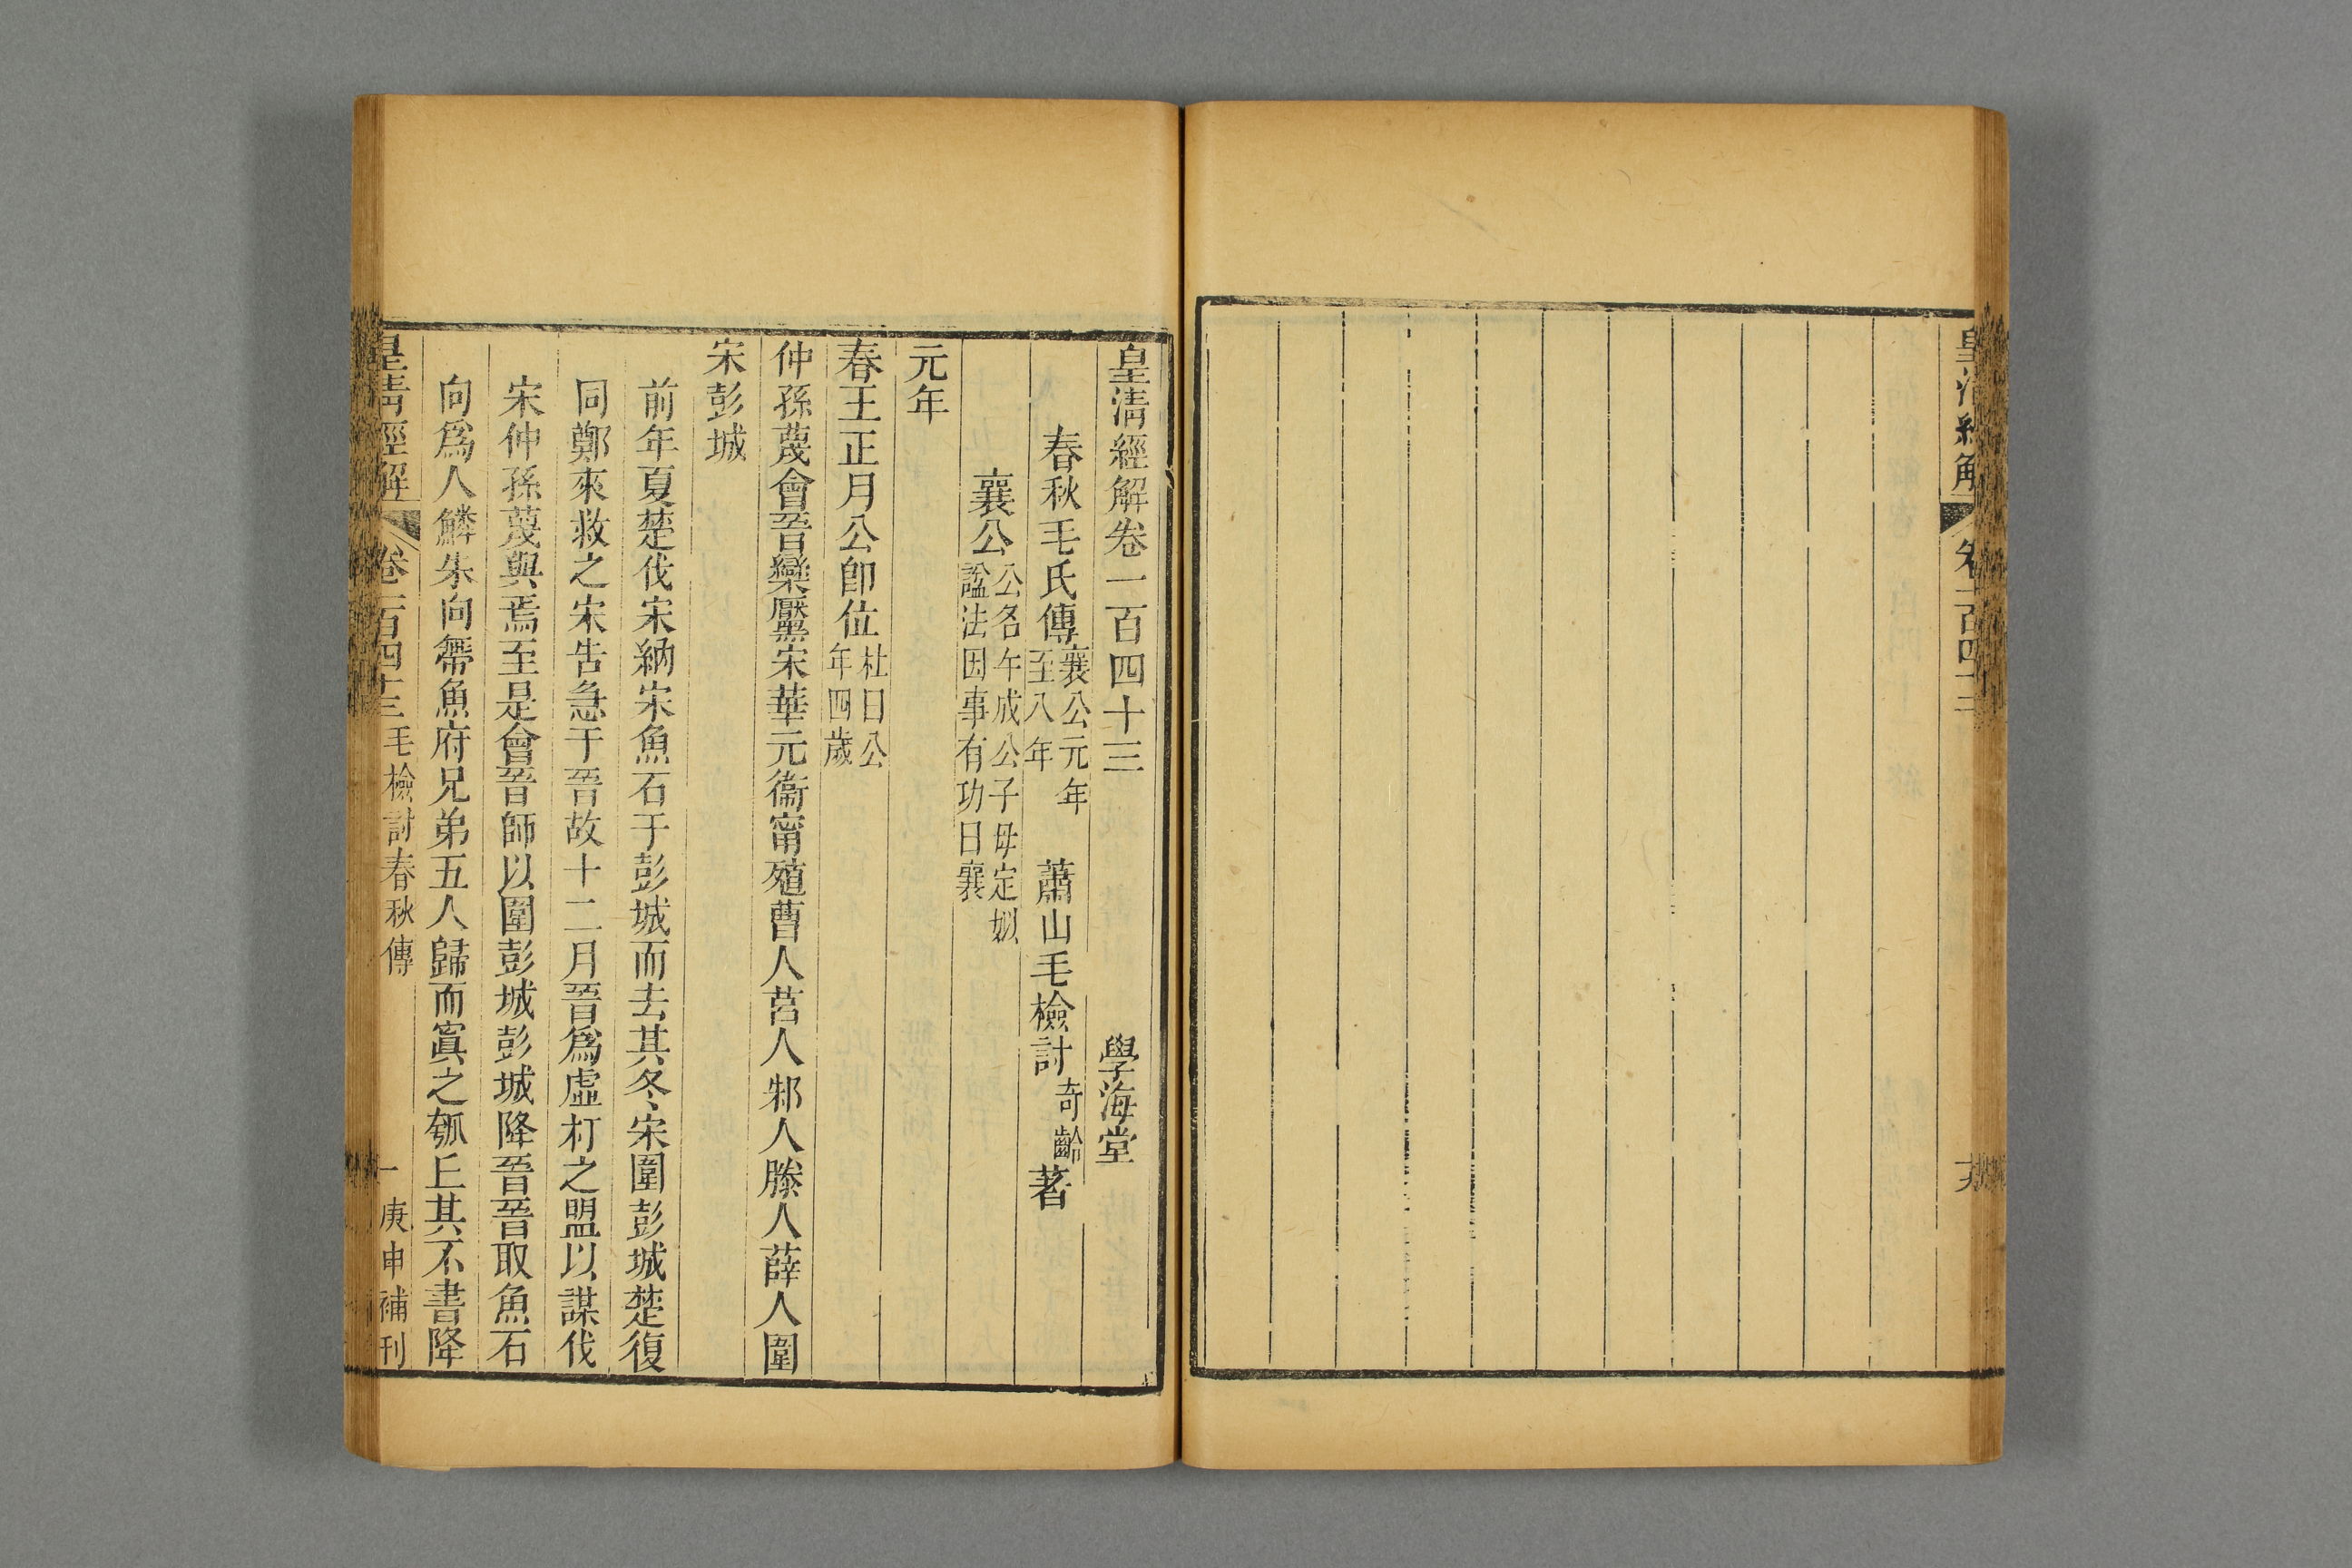 皇清經解
卷一百四十二
皇清經解卷一百四十三　學海堂
春秋毛氏傳襄公元年至八年　蕭山毛檢討奇齡著
襄公公名午成公子母定姒諡法因事有功曰襄
元年
春王正月公卽位杜曰公年四歲
仲孫蔑會晉欒黶宋華元衞甯殖曹人莒人邾人滕人薛人圍
宋彭城
前年夏楚伐宋納宋魚石于彭城而去其冬宋圍彭城楚復
同鄭來救之宋告急于晉故十二月晉爲虛朾之盟以謀伐
宋仲孫蔑與焉至是會晉師以圍彭城彭城降晉晉取魚石
向爲人鱗朱向帶魚府兄弟五人歸而寘之瓠丘其不書降
皇清經解　卷一百四十三　毛檢討春秋傳　一　庚申補刊